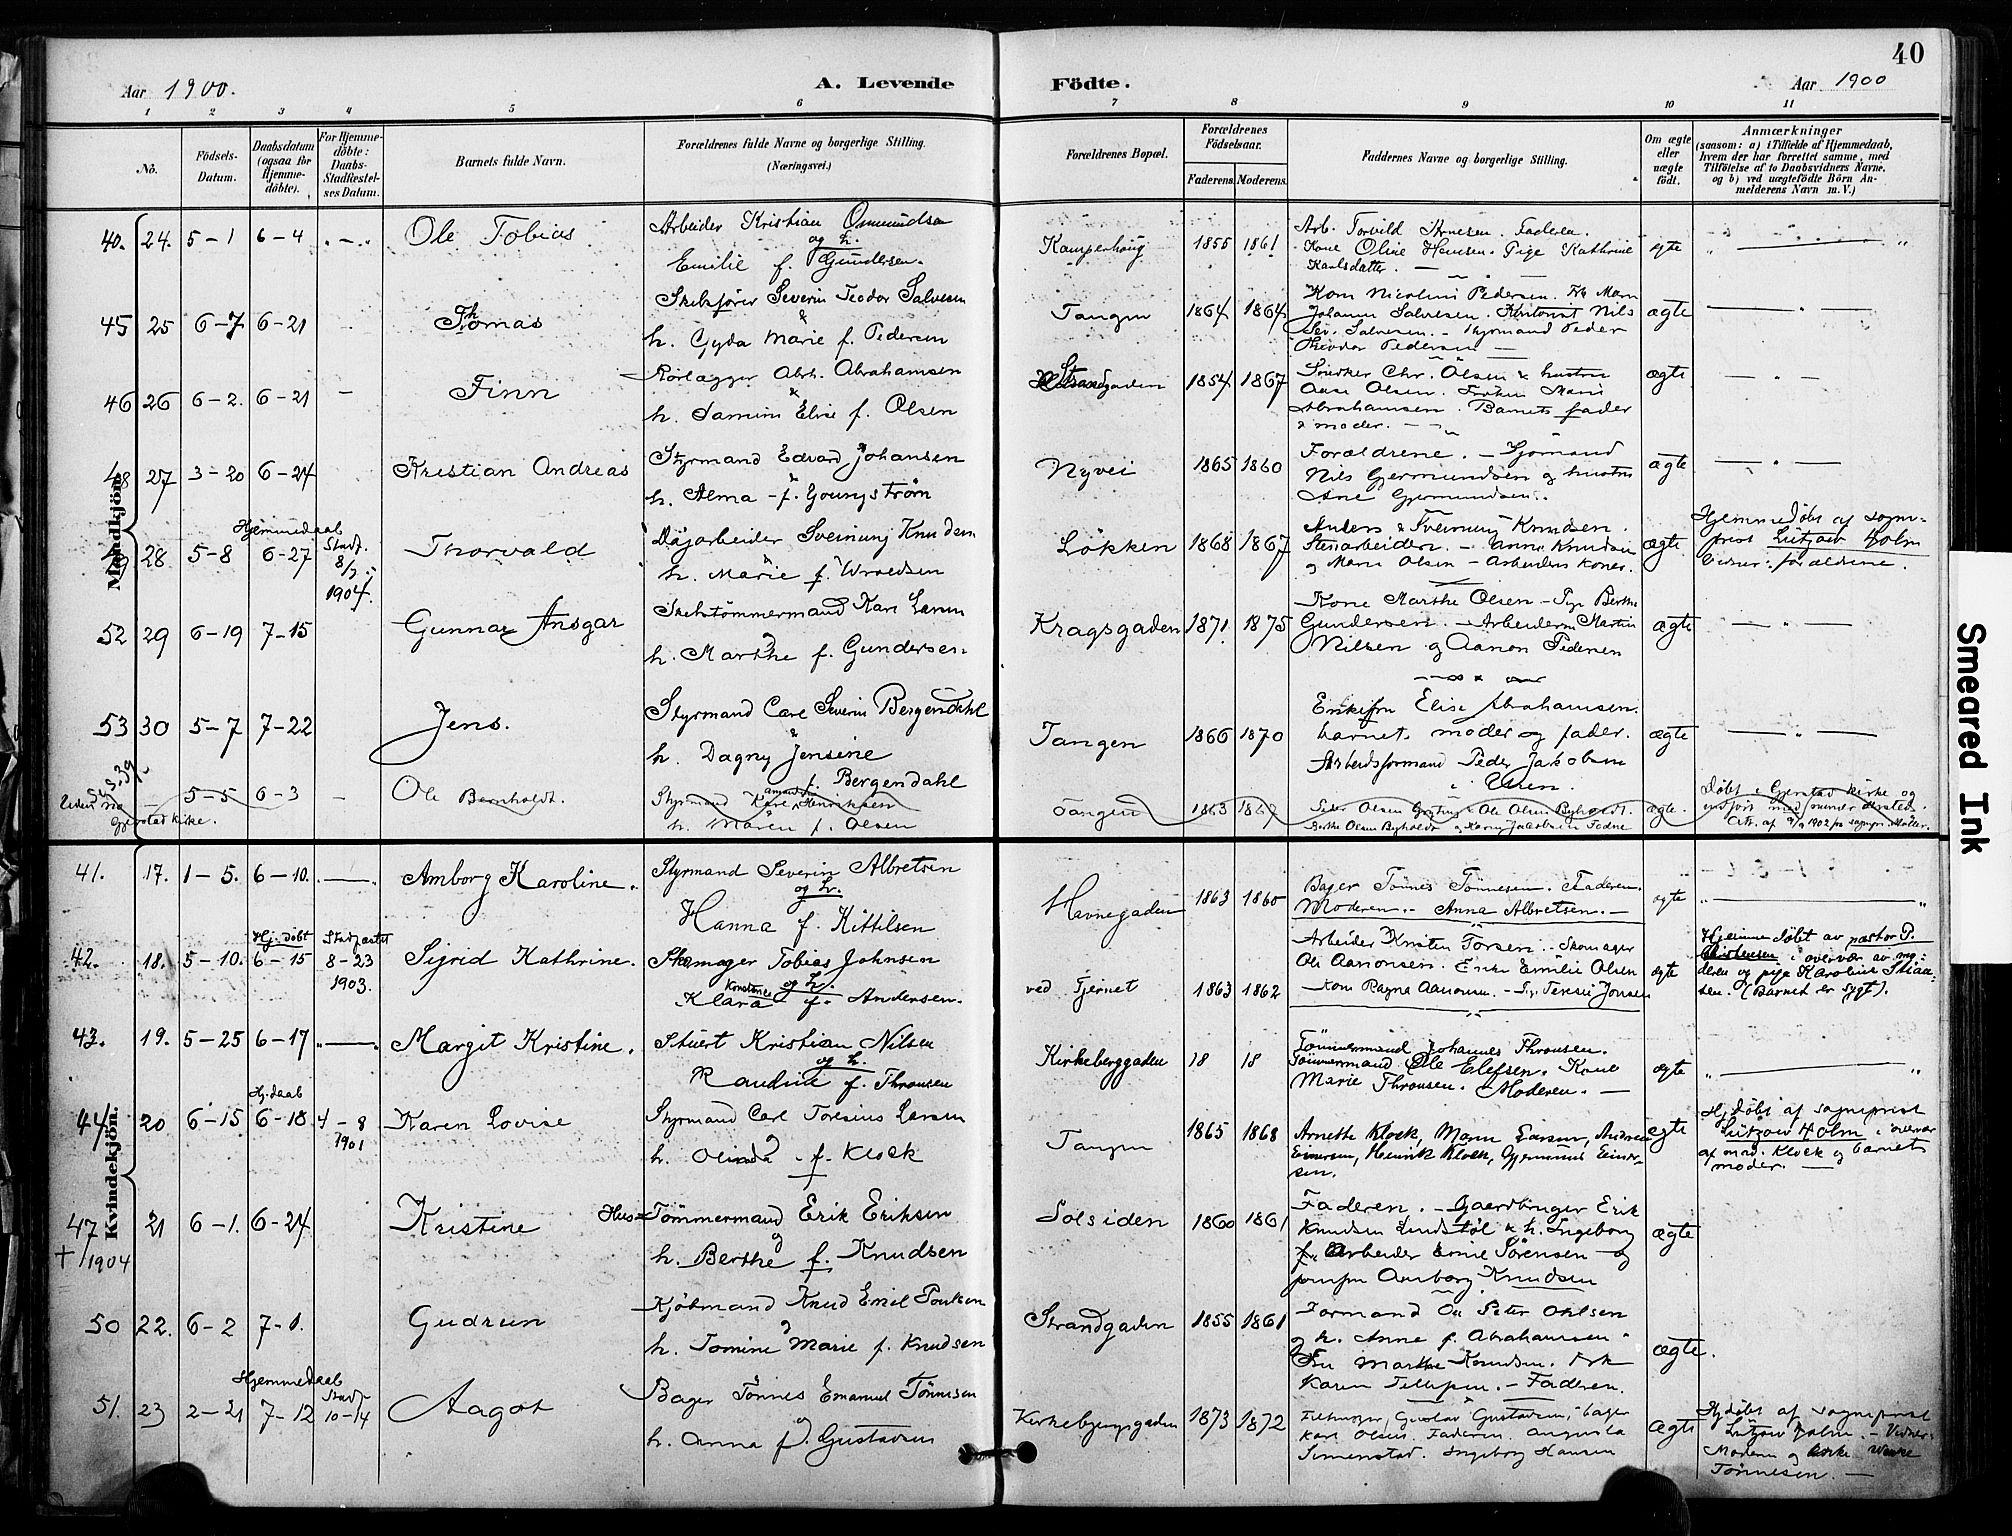 40
Aar 1900.
A. Levende
Födte.
Aar 1900
1 2 3 4 5 6 7 8 9 10 11
No.
Födsels-Datum.
Daabsdatum (ogsaa for Hjemme-döbte).
For Hjemme-döbte: Daabs-Stadfæstel-ses Datum.
Barnets fulde Navn.
Forældrenes fulde Navne og borgerlige Stilling. (Næringsvei.)
Forældrenes Bopæl.
Forældrenes Födselsaar.
Faderens. Moderens.
Faddernes Navne og borgerlige Stilling.
Om ægte eller uægte födt.
Anmærkninger
(saasom: a) i Tilfælde af Hjemmedaab, hvem der har forrettet samme, med Tilföielse af to Daabsvidners Navne, og b) ved uægtefödte Börn An-melderens Navn m. V.)
Mandkjön.
40. 24. 5-1 6-4 Ole Tobias
Arbeider Kristian Osmundsen
og h.
Emilie f. Gundersen.
Kamperhaug 1855 1861
Arb. Torvild Arnesen. Faderen.
Kone Oline Hansen. Pige Kathrine
Karlsdatter. —
ægte
45 25 6-7 6-21 Thomas
Skibsfører Severin Teodor Salvesen
&
h. Gyda Marie f. Pedersen
Tangen 1864 1864
Kone Nicoline Pedersen. Frk Maren
Johanne Salvesen. Nils
Sev. Salvesen. — Styrmand Peder
Theodor Pedersen —
ægte
46 26 6-2. 6-21 — Finn
Rørlægger Abrh. Abrahamsen
&
h. Samine Elise f. Olsen
Strandgaden 1854 1867
Snedker Chr. Olsen & hustru
Aase Olsen. Frøken Marie
Abrahamsen. Barnets fader
& moder. —
ægte
48 27 3-20 6-24 Kristian Andreas
Styrmand Edvard Johansen
&
h. Alma — f. Youngstrøm
Nyvei 1865 1860
Forældrene. — Sjömand
Nils Gjermundsen og hustru
Ane Gjermundsen.
ægte
28 5-8
Hjemmedaab
6-27
Stadf. 8/7 1904.
Thorvald
Dagarbeider Sveinung Knudsen
&
h. Marie f. Wroldsen
Løkken 1868 1867
Anders & Sveinung Knudsen.
Stenarbeidere. — Anna Knudsen
og Marie Olsen — Arbeideres koner.
ægte
Hjemmedøbt af sogne-
prest Lützow Holm
Vidner: forældrene.
52 29 6-19 7-15 Gunnar Ansgar
Skibstömmermand Karl Larsen
&
h. Marthe f. Gundersen.
Kragsgaden 1871 1875
Kone Marthe Olsen — Pige Berthe
Gundersen. — Arbeiderne Martin
Nilsen og Aanon Pedersen
ægte
53 30 5-7 7-22 Jens.
Styrmand Carl Severin Bergendahl
&
h. Dagny Jensine
f. Bergendahl
Tangen 1866 1870
Enkefru Elise Abrahamsen.
barnets moder og fader.
Arbeidsformand Peder Jakobsen
ægte
Gjerstad kirke.
5-5 6-3 — Ole Bernholdt.
Styrmand Karl Henriksen
h. Maren f. Olsen
Tangen 1863 1867
Ole Olsen Byholdt.
Berthe Olsen Byholdt og Karen Jakobsen Fedne
ægte.
Døbt i Gjerstad kirke og
indført med nummer dersteds.
Att. af 9/9 1902 fra sognepr. Møller.
Kvindekjön.
41. 17. 1-5. 6-10. Amborg Karoline.
Styrmand Severin Albretsen
og h.
Hanna f. Kittilsen
Havnegaden 1863 1865
Bager Tönnes Tönnesen. Faderen.
Moderen. — Anna Albretsen. —
ægte
42. 18. 5-10.
Hj. döbt
6-15
Stadfæstet
8-23 1903.
Sigrid Kathrine.
Skomager Tobias Johnsen
og h.
Klara Konstance f. Andersen.
ved Tjernet 1863 1862
Arbeider Kristen Torsen. Skomager
Ole Aanonsen. Enke Emilie Olsen
Kone Ragna Aanonsen. — Pg. Terese Jonsen
ægte
Hjemmedøbt av pastor P.
Christensen i overvær av mo-
deren og pige Karoline
(Barnet er sygt).
43. 19. 5-25 6-17 Margit Kristine.
Stuert Kristian Nilsen
og h.
Raudine f. Thronsen
Kirkeberggaden 18 18
Tömmermand Johannes Thronsen.
Tömmermand Ole Elefsen. Kone
Marie Thronsen. Moderen. —
ægte
44 20 6-15
Hj.daab
6-18 4-8 1901
Karen Lovise
Styrmand Carl Toresius Larsen
&
h. Olinda f. Klock
Tangen 1865 1868
Arnette Klock, Maren Larsen, Andreas
Einersen, Henrik Klock, Gjermund Einer-
sen.
ægte
Hj.døbt af sogneprest
Lützow Holm i overvær
af mad. Klock og barnets
moder. —
47 21 6-1. 6-24 Kristine
+/1904
Hus-Tömmermand Erik Eriksen
og
h. Berthe f. Knudsen
Solsiden 1860 1861
Faderen. — Gaardbruger Erik
Knudsen Lindstøl & h. Ingeborg
f. Arbeider Emil Sørensen — og
jomfru Amborg Knudsen
ægte
50 22. 6-2 7-1. Gudrun
Kjöbmand Knud Emil Poulsen
&
h. Tomine Marie f. Knudsen
Strandgaden 1855 1861
Formand Ole Peter Ohlsen
og h. Anne f. Abrahamsen.
Fru Marthe Knudsen. Frk
Karen Tellefsen. — Faderen.
ægte.
51. 23 2-21
Hjemmedaab
7-12
Stadf.
10-14
Aagot
Bager Tönnes Emanuel Tönnesen
&
h. Anna f. Gustavsen
Kirkebjergsgaden 1873 1872
Gustav Gustavsen, bager
Karl Olsen. Faderen. Augusta
Simenstad. Ingeborg Hansen
ægte
Hj.døbt af sogneprest
Lützow Holm. — Vidner:
Moderen og enke
Tönnesen. —
Smeared Ink